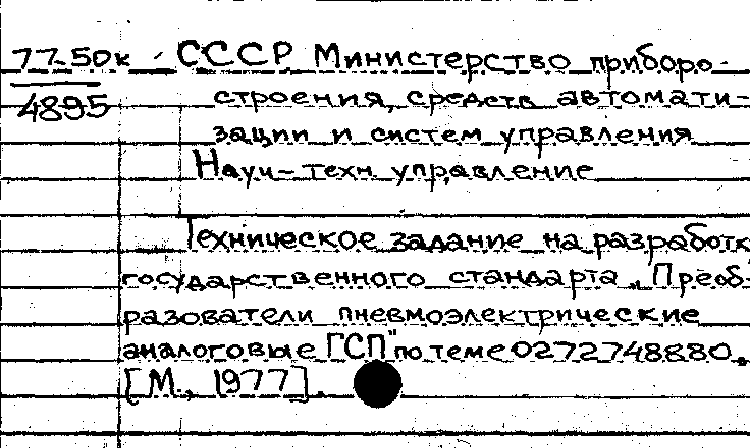 77-50к СССР Министерство приборо-
4895 строения, средств автомати-
зации и систем управления
Науч-техн управление
Техническое задание на разработк
государственного стандарта „Преоб-
разователи пневмоэлектрические
аналоговые ГСП" по теме 0272748880.
[М., 1977].